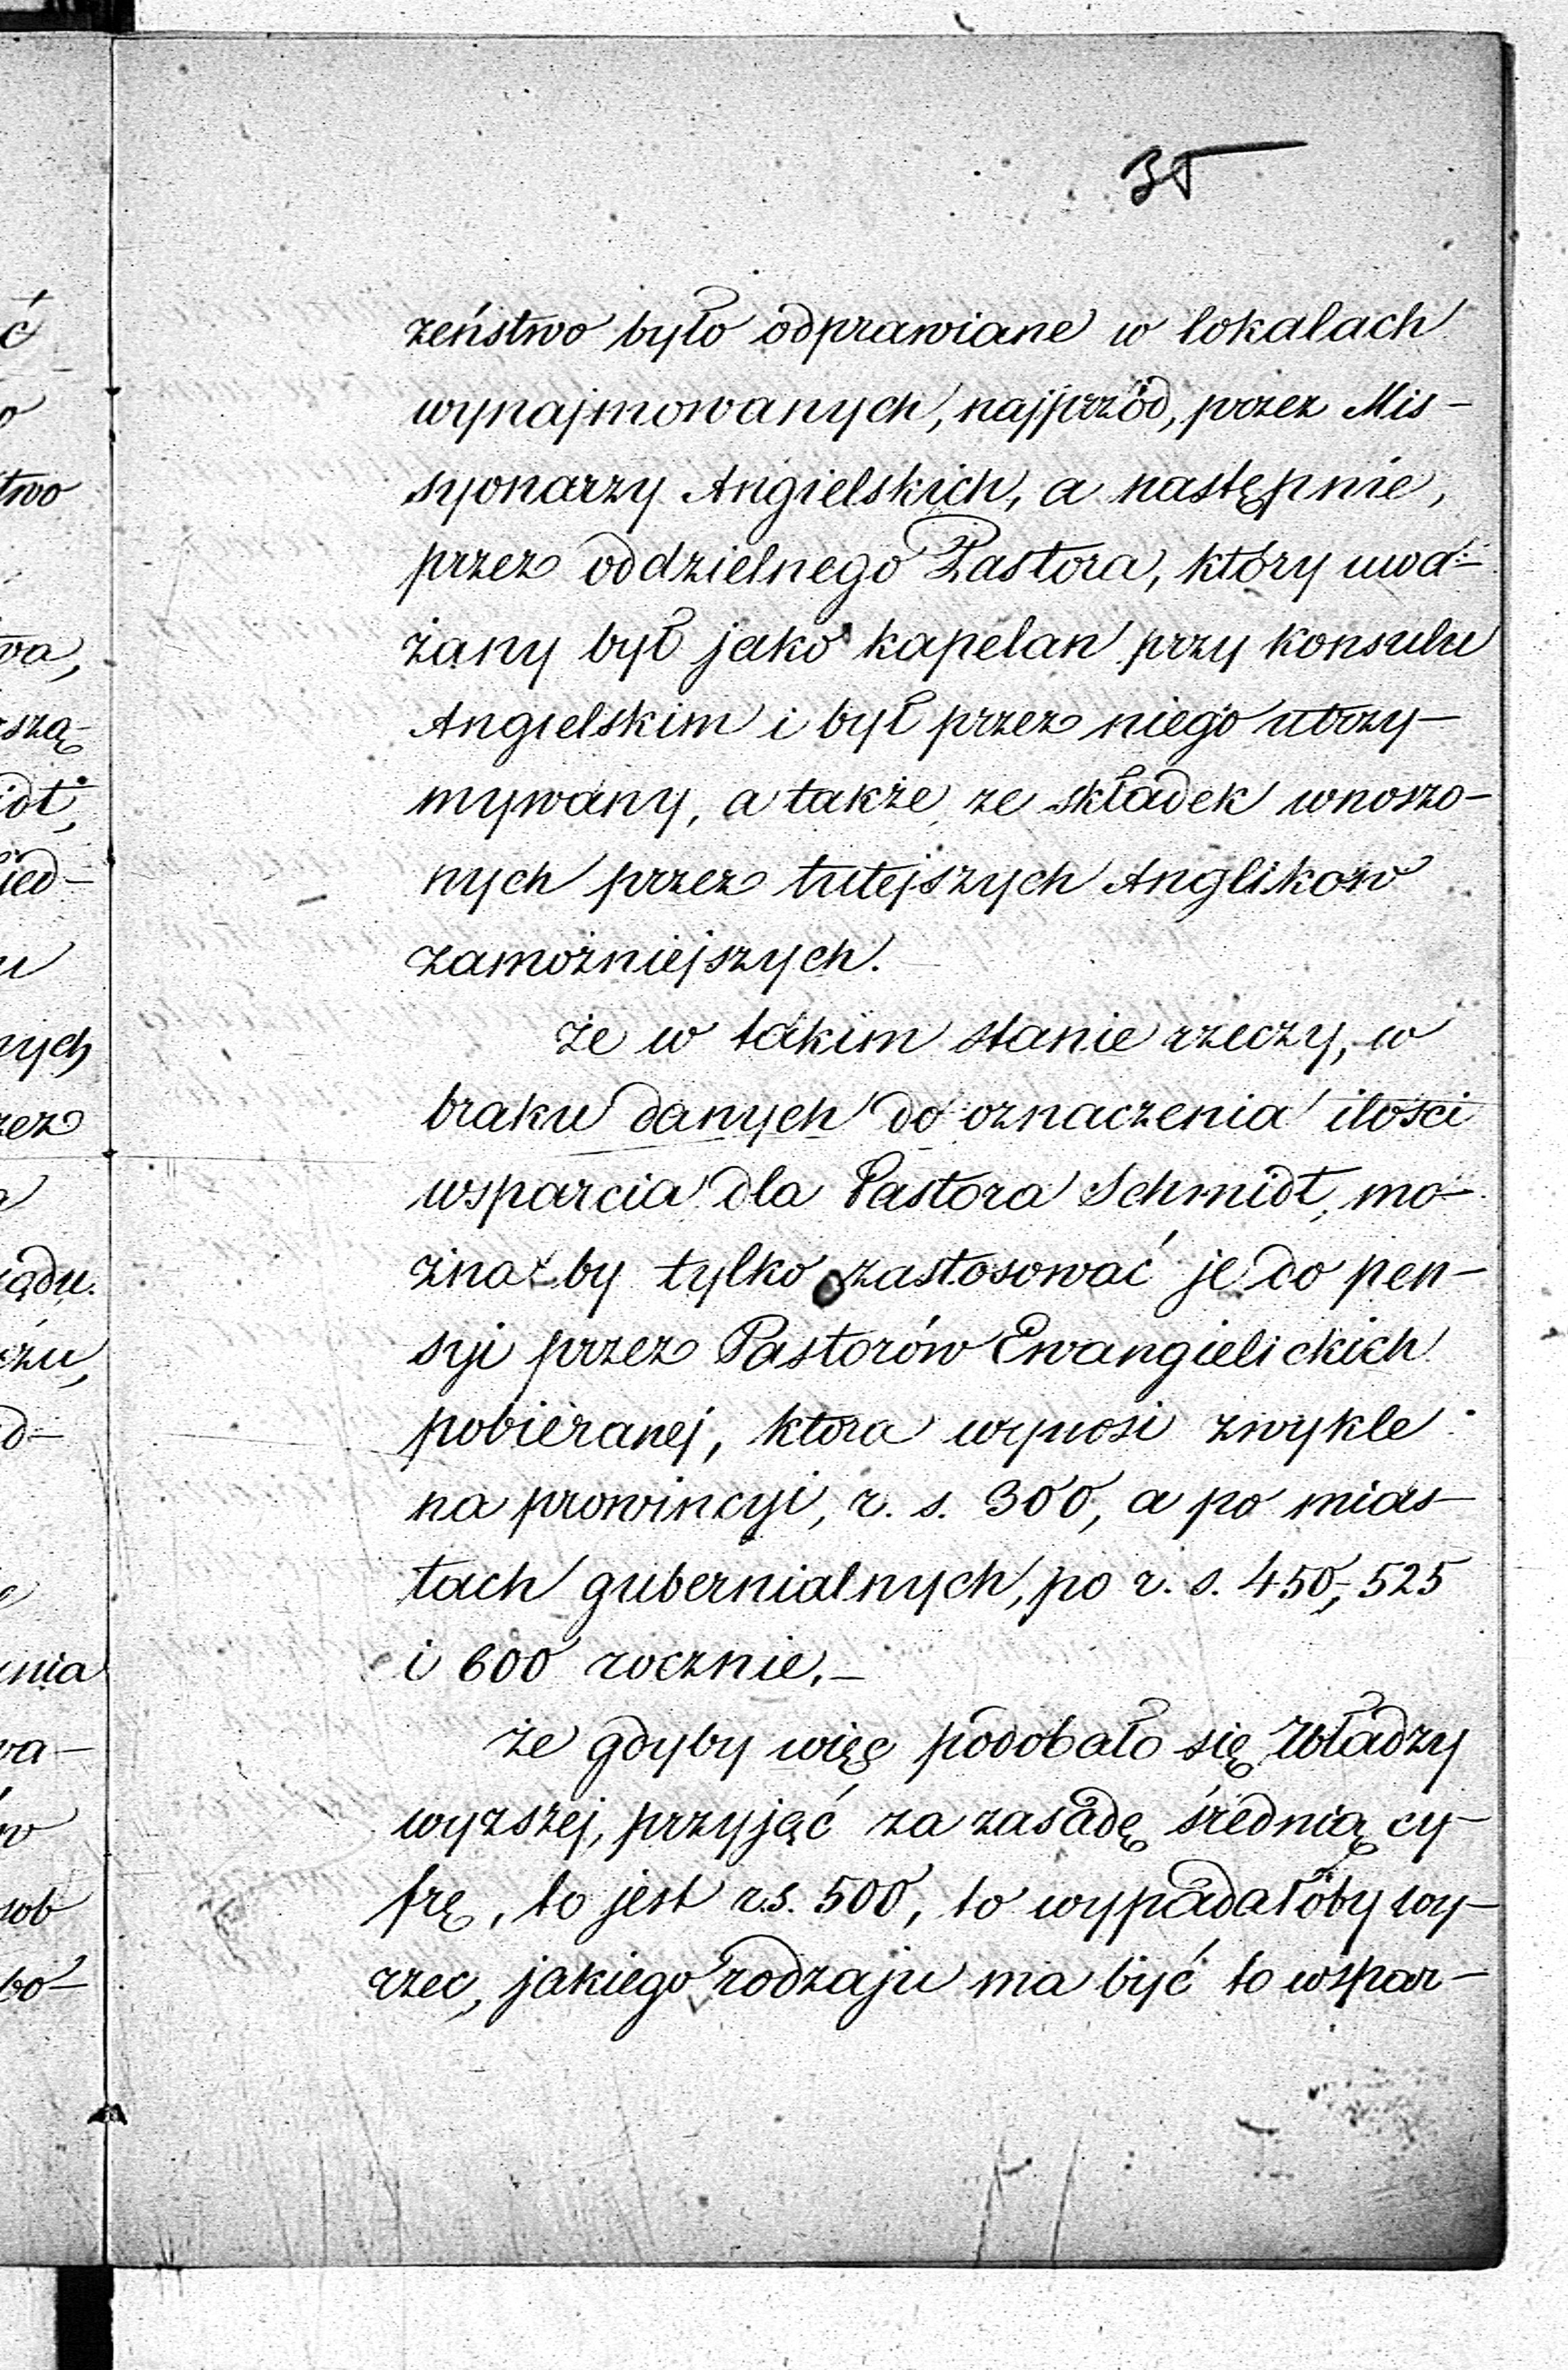 35
żeństwo było odprawiane w lokalach
wynajmowanych, najprzód, przez Mis-
syonarzy Angielskich, a następnie,
przez oddzielnego Pastora, który uwa-
żany był jako kapelan przy konsulu
Angielskim i był przez niego utrzy-
mywany, a także ze składek wnoszo-
nych przez tutejszych Anglików
zamożniejszych.
że w takim stanie rzeczy, w
braku danych do oznaczenia ilości
wsparcia dla Pastora Schmidt, mo-
żna by tylko zastosować je do pen-
syi przez Pastorów Ewangielickich
pobieranej, która wynosi zwykle
na prowincyi, r. s. 300, a po mias-
tach gubernialnych, po r. s. 450, 525
i 600 rocznie.-
że gdyby więc podobało się Władzy
wyższej, przyjąć za zasadę średnią cy-
frę, to jest r.s. 500, to wypadałoby wy-
rzec, jakiego rodzaju ma być to wspar-